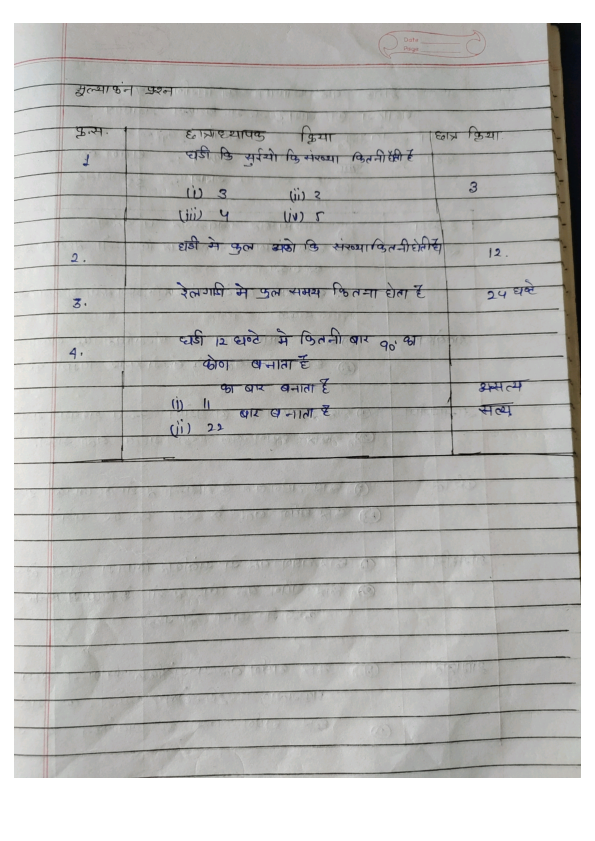 Date
Page
मुल्याकंन प्रश्न
क्र०स. छात्राध्यापक क्रिया छात्र क्रिया
1 घडी कि सुईयो कि संख्या कितनी होती है
(i) 3 (ii) 2 3
(iii) 4 (iv) 5
2. घडी मे कुल अंको कि संख्या कितनी होती है। 12.
3. रेलगाडी मे कुल समय कितना होता है 24 घण्टे
4. घडी 12 घण्टे मे कितनी बार 90° का
कोण बनाता है
का बार बनाता है असत्य
(i) 11 बार बनाता है सत्य
(ii) 22